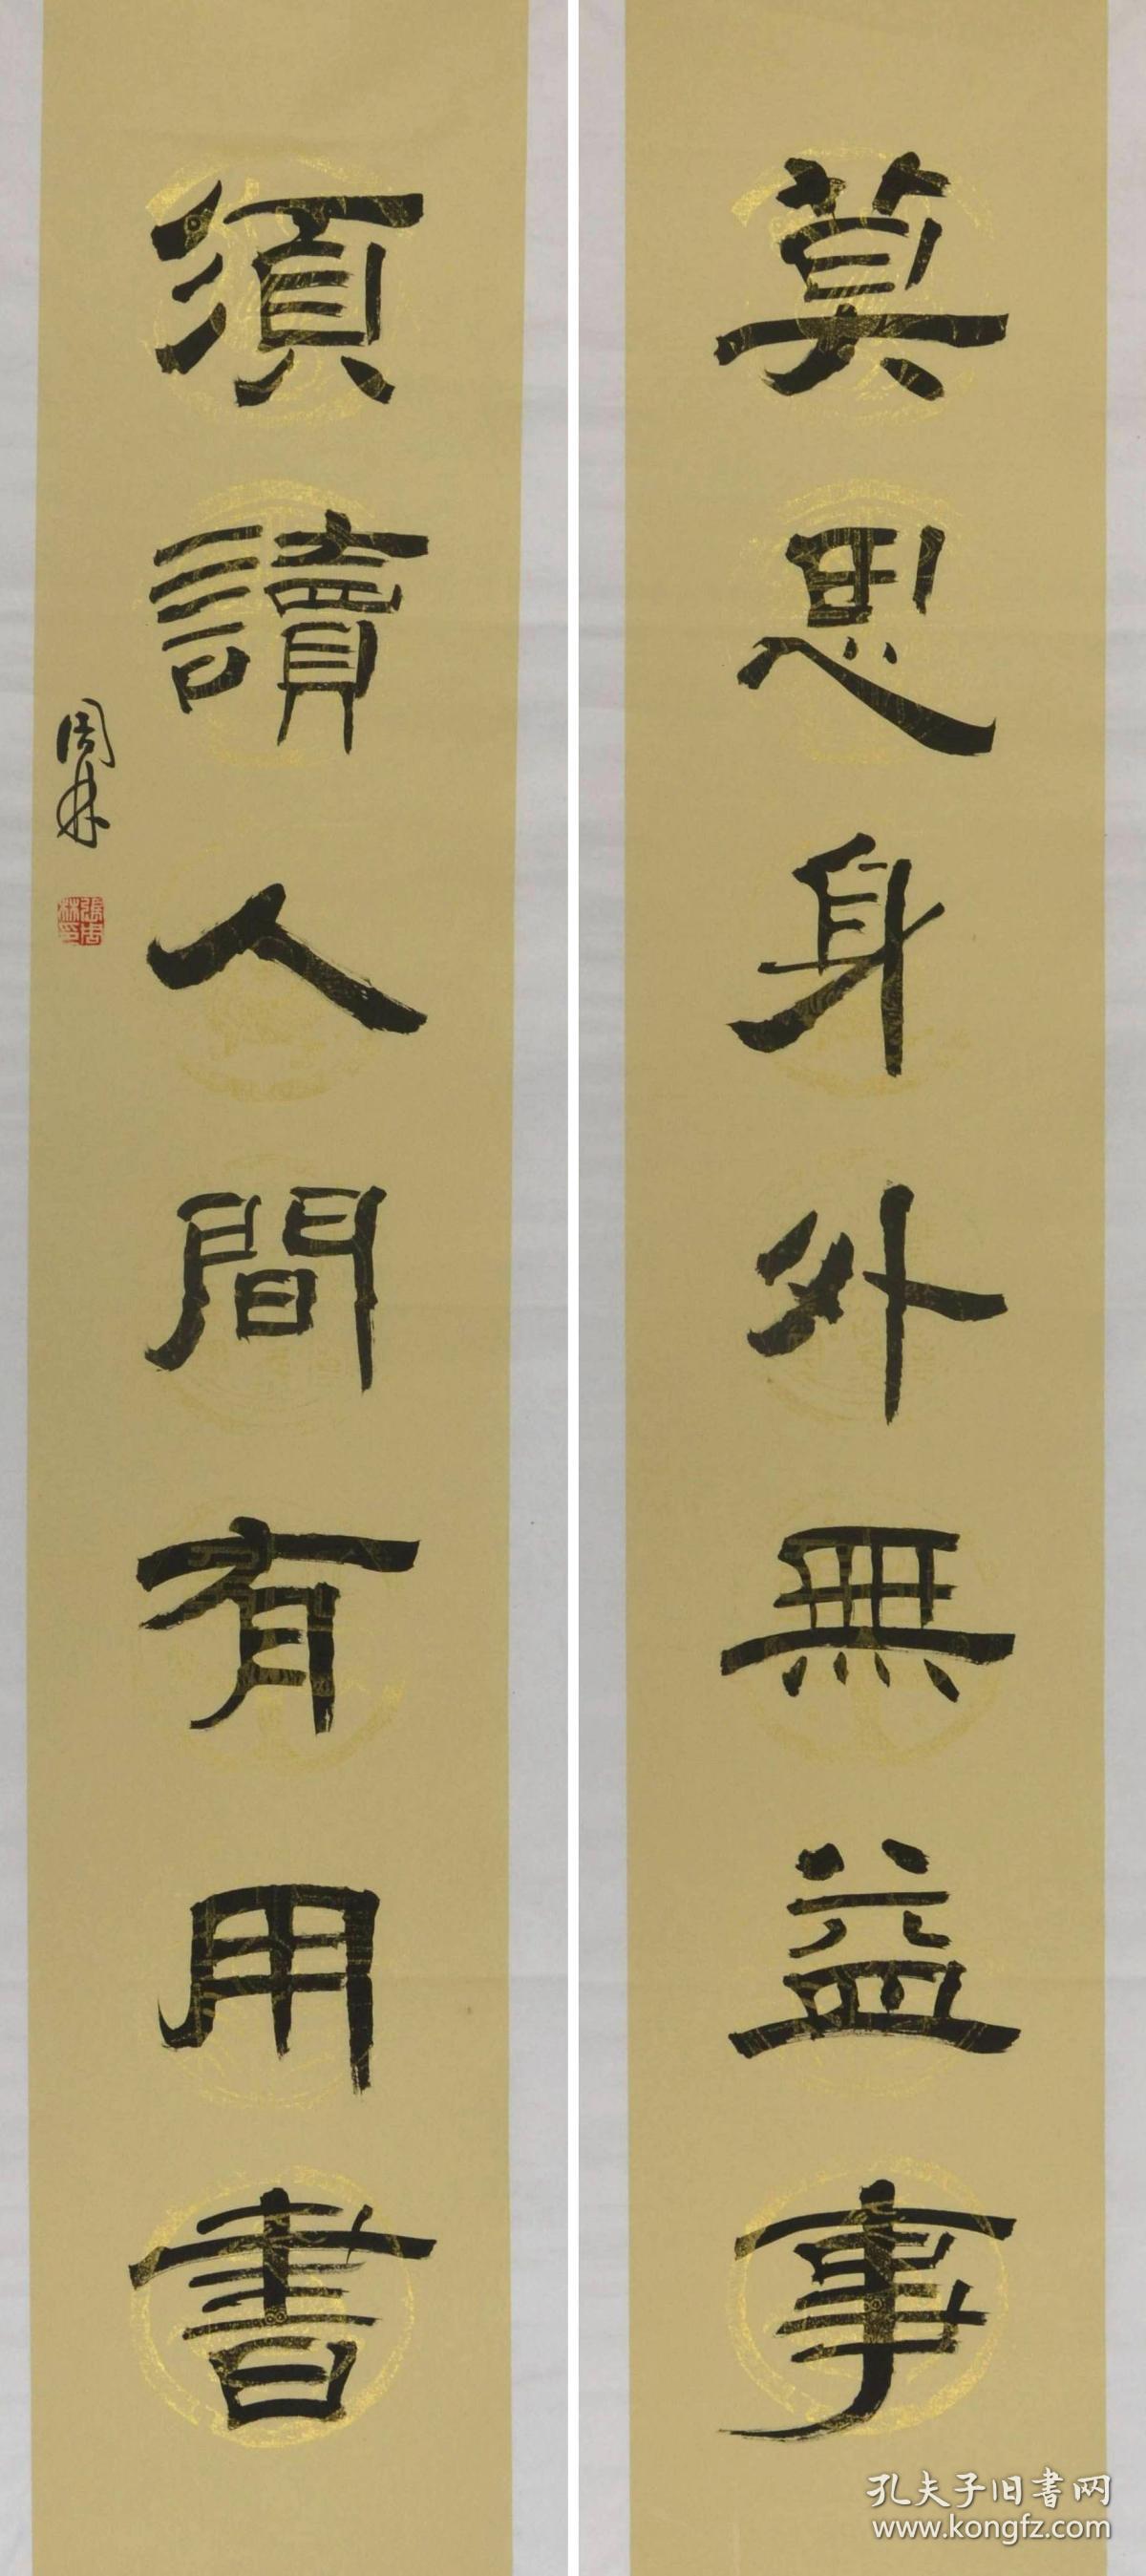 莫思身外無益事
須讀人間有用書
周林
張周林印
孔夫子旧书网
www.kongfz.com